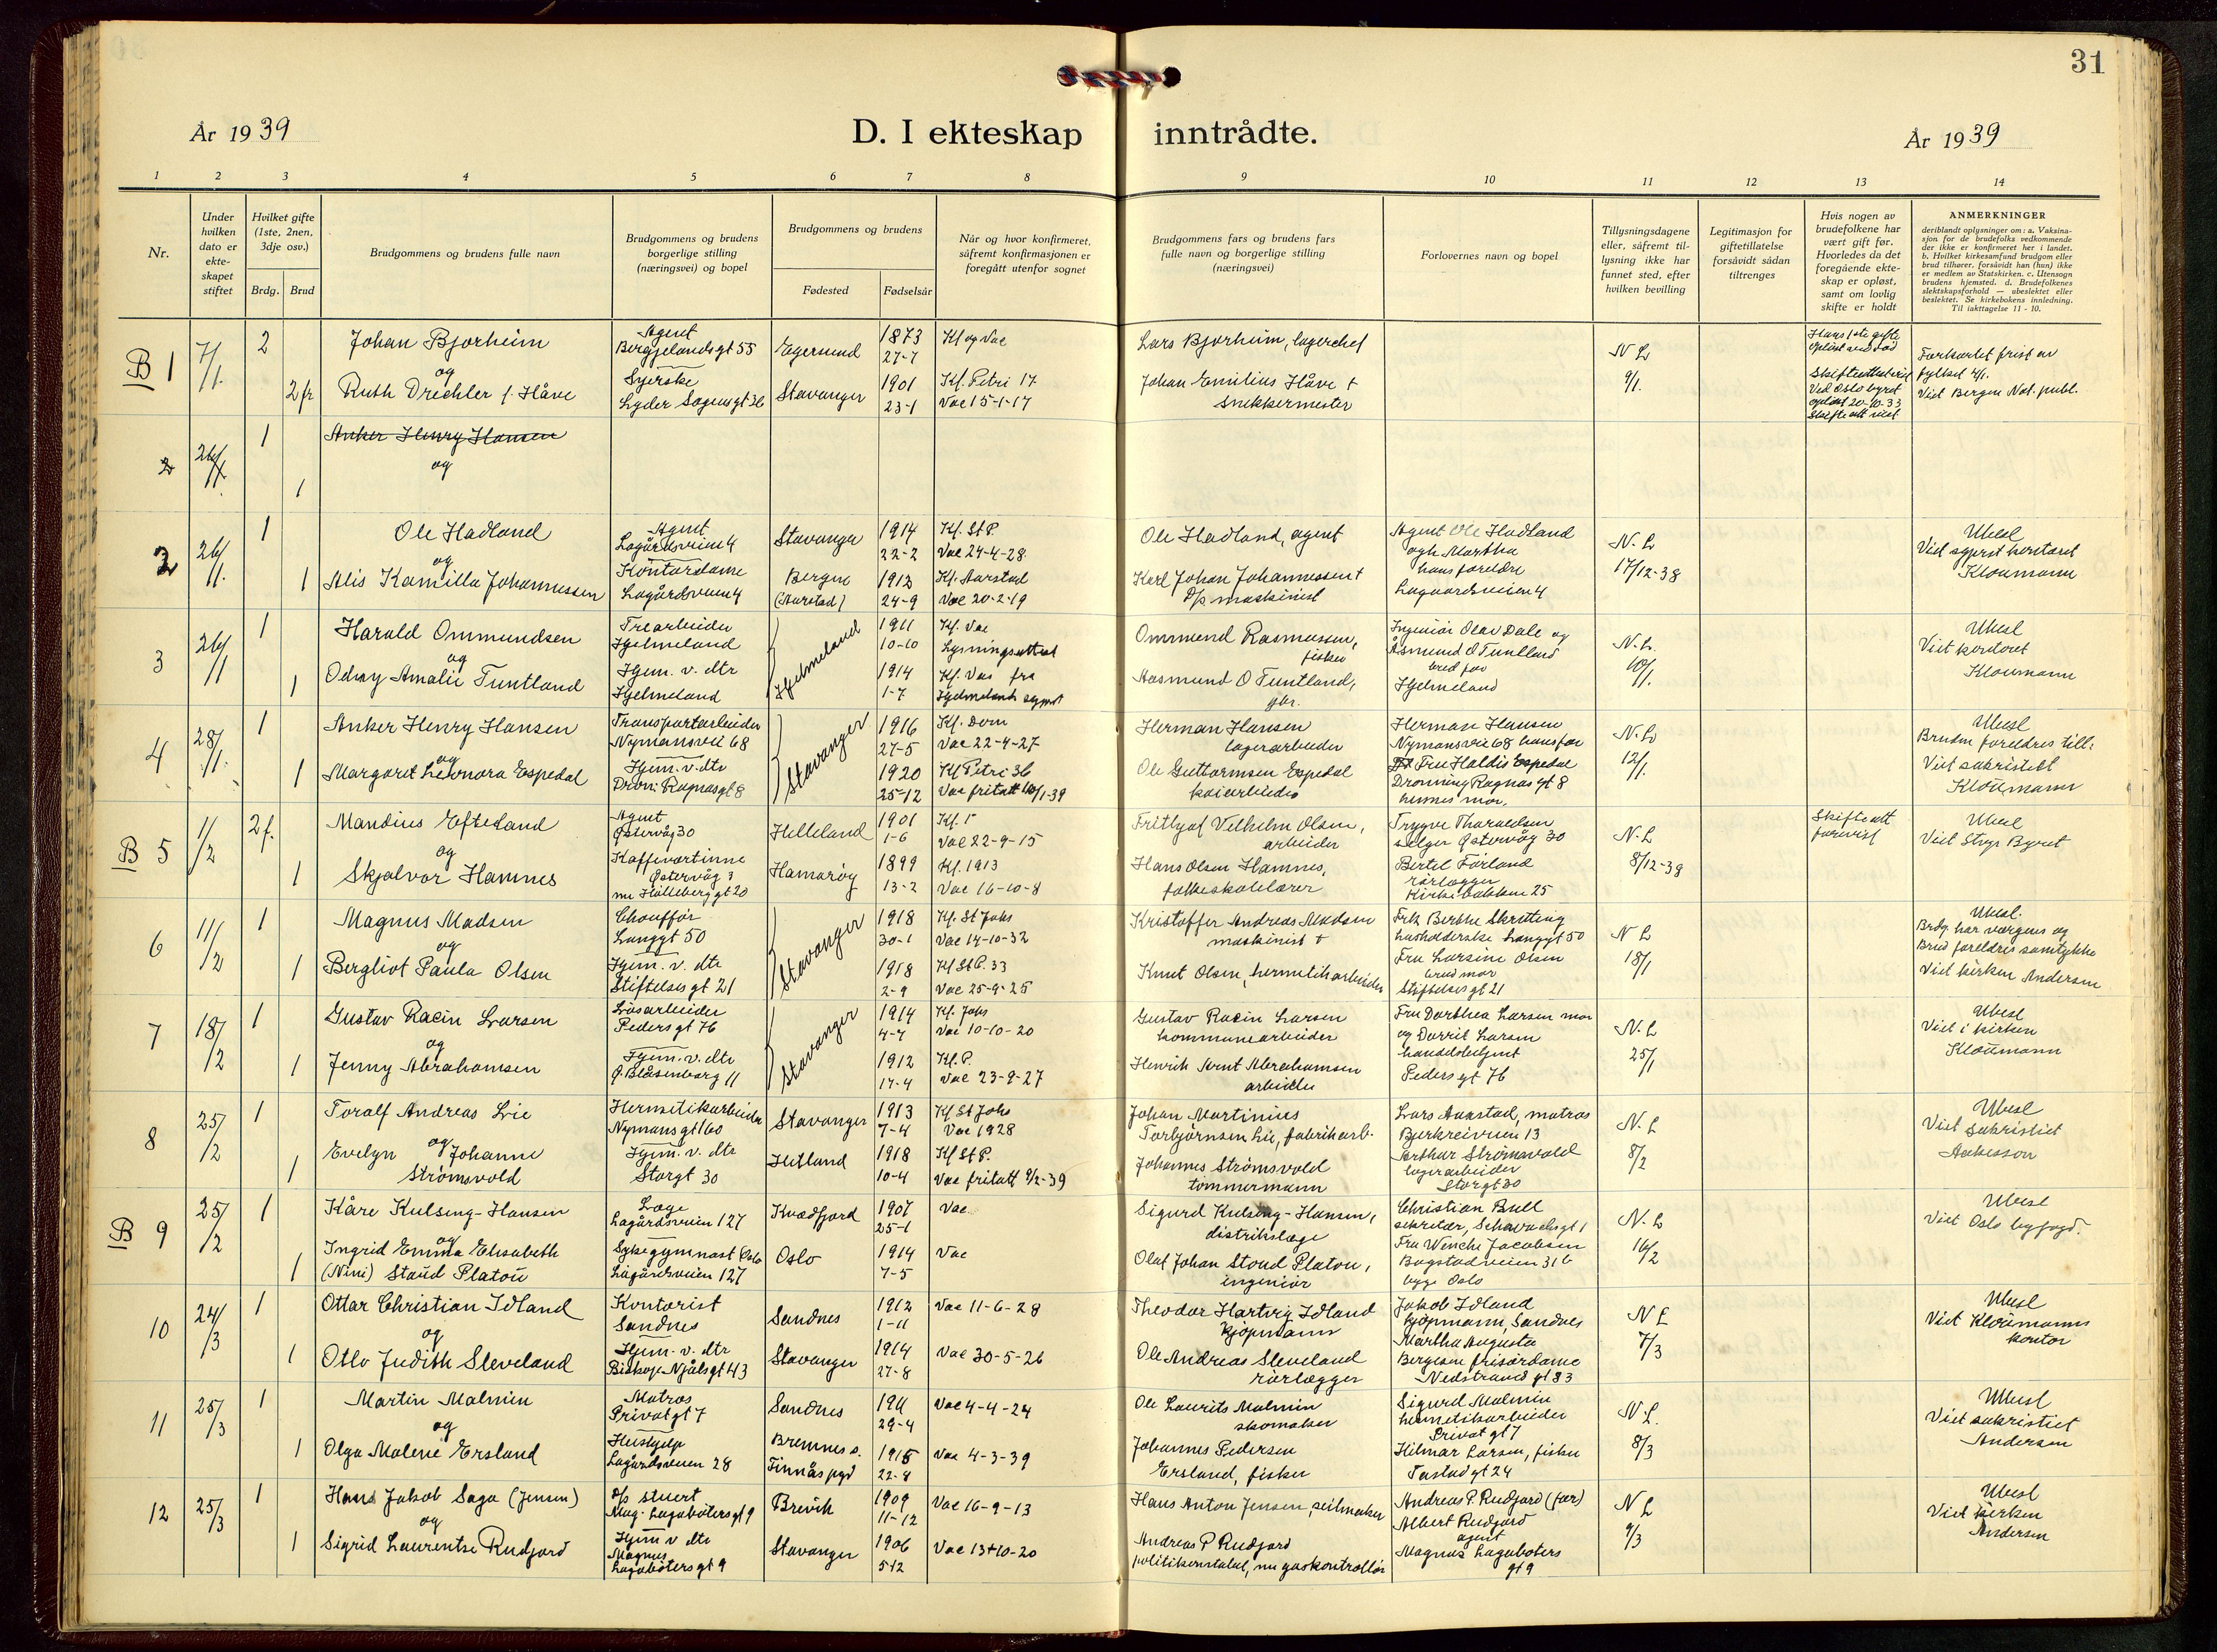 31
År 1939
D. I ekteskap inntrådte.
År 1939
1 2 3 4 5 6 7 8 9 10 11 12 13 14
Nr.
Under hvilken dato er ekte-skapet stiftet
Hvilket gifte (1ste, 2nen, 3dje osv.)
Brdg. Brud
Brudgommens og brudens fulle navn
Brudgommens og brudens borgerlige stilling (næringsvei) og bopel
Brudgommens og brudens
Fødested
Fødselsår
Når og hvor konfirmeret, såfremt konfirmasjonen er foregått utenfor sognet
Brudgommens fars og brudens fars fulle navn og borgerlige stilling (næringsvei)
Forlovernes navn og bopel
Tillysningsdagene eller, såfremt til-lysning ikke har funnet sted, efter hvilken bevilling
Legitimasjon for giftetillatelse forsåvidt sådan tiltrenges
Hvis nogen av brudefolkene har vært gift før. Hvorledes da det foregående ekte-skap er opløst, samt om lovlig skifte er holdt
ANMERKNINGER
deriblandt oplysninger om: a. Vaksina-sjon for de brudefolks vedkommende der ikke er konfirmeret her i landet. b. Hvilket kirkesamfund brudgom eller brud tilhører, forsåvidt han (hun) ikke er medlem av Statskirken. c. Utensogn brudens hjemsted. d. Brudefolkenes slektskapsforhold — ubeslektet eller beslektet. Se kirkebokens innledning. Til iakttagelse 11 - 10.
B 1 7/1. 2 Johan Bjorheim Agent Bergjelandsgt 55 Egersund 1873 27-7 Kf og Vac Lars Bjorheim, lagerchef N L 9/1.
og
2 fr Ruth Drechler f. Håve Syerske Lyder Sagensgt 36 Stavanger 1901 23-1 Kf. Petri 17 Vac 15-1-17 Johan Emilius Håve + snekkermester
Ved Oslo byret opløst 20-10-33
Forkortet frist av fylket
Viet Bergen Not. publ.
2 26/1. 1 Anker Henry Hansen
og
1
2 26/1. 1 Ole Hadland Agent Lagårdsveien 4 Stavanger 1914 22-2 Kf. St P. Vac 24-4-28 Ole Hadland, agent Agent Ole Hadland N. L 17/12-38 Ubesl
og
1 Alis Kamilla Johannessen Kontordame Lagårdsveien 4 Bergen (Aarstad) 1912 24-9 Kf. Aarstad Vac 20-2-19 Karl Johan Johannessen + D/s maskinist og Martha hans foreldre Lagaardsveien 4 Viet kontoret Kloumann
3 26/1 1 Harald Ommundsen Trearbeider Hjelmeland Hjelmeland 1911 10-10 Kf. Vac Lysningsattest Ommund Rasmussen, fisker Ingeniør Olav Dale og N. L. 10/1. Ubesl
og
1 Odny Amalie Tuntland Hjem. v. dtr Hjelmeland 1914 1-7 Kf. Vac fra Hjelmeland Aasmund O Tuntland, gbr. Åsmund O Tuntland brud far Hjelmeland Viet kontoret Kloumann
4 28/1. 1 Anker Henry Hansen Transportarbeider Nymansvei 68 Stavanger 1916 27-5 Kf. Dom Vac 22-4-27 Herman Hansen lagerarbeider Herman Hansen Nymansvei 68 hans far N. L 12/1. Ubesl
og
1 Margaret Leonora Espedal Hjem. v. dtr Dronn. Ragnasgt 8 1920 25-12 Kf Petri 36 Vac fritatt 10/1-39 Ole Guttormsen Espedal kaiarbeider Fru Haldis Espedal Dronning Ragnas gt 8 hennes mor. Brudens foreldres till: Viet sakristiet Kloumann
B 5 1/2 2 f. Mandius Efteland Agent Østervåg 30 Helleland 1901 1-6 Kf. Vac 22-9-15 Frithjof Vilhelm Olsen, arbeider Trygve Tharaldsen selger Østervåg 30 N. L 8/12-38 Skifteatt forevist Ubesl
og
1 Skjalvor Hamnes Kaffevertinne Østervåg 3 Hamarøy 1899 13-2 Kf. 1913 Vac 16-10-8 Hans Olsen Hamnes, folkeskolelærer Bertel Førland rørlegger Kirkebakken 25 Viet Stvgr Byret
6 11/2 1 Magnus Madsen Chauffør Langgt 50 Stavanger 1918 30-1 Kf. St Johs Vac 14-10-32 Kristoffer Andreas Madsen maskinist + Frk Berthe Skretting husholderske Langgt 50 N L 18/1 Ubesl.
og
1 Bergliot Paula Olsen Hjem. v. dtr Stiftelsesgt 21 1918 2-9 Kf St P. 33 Vac 25-9-25 Knut Olsen, hermetikarbeider Fru Larsine Olsen brud mor Stiftelsesgt 21 Brdg. har værgens og Brud foreldres samtykke Viet kirken Andersen
7 18/2 1 Gustav Racin Larsen Løsarbeider Pedersgt 76 Stavanger 1914 4-7 Kf. Johs Vac 10-10-20 Gustav Racin Larsen kommunearbeider Fru Dorthea Larsen mor N. L 25/1 Ubesl
og
1 Jenny Abrahamsen Hjem. v. dtr Ø. Blåsenborg 11 1912 17-4 Kf. P. Vac 23-9-27 Henrik Arnt Abrahamsen arbeider og Dorrit Larsen handelsbetjent Pedersgt 76 Viet i kirken Kloumann
8 25/2 1 Toralf Andreas Lie Hermetikarbeider Nymansgt 160 Stavanger 1913 7-4 Kf St Johs Vac 1928 Johan Martinius Torbjørnsen Lie, fabrikarb. Lars Aanstad, matros Bjerkreimveien 13 N. L 8/2 Ubesl
1 Evelyn og Johanne Strømsvold Hjem. v. dtr Storgt 30 Hetland 1918 10-4 Kf St P. Vac fritatt 9/2-39 Johannes Strømsvold tømmermann Arthur Strømsvold lagerarbeider Storgt 30 Viet sakristiet
B 9 25/2 1 Kåre Kulseng-Hansen Læge Lagårdsveien 127 Kvædfjord 1907 25-1 Vac. Sigurd Kulseng-Hansen, distrikslæge Christian Bull sekretær, N. L 16/2 Ubesl
og
1 Ingrid Emma Elisabeth (Nini) Stoud Platou Sykegymnast Oslo Lagårdsveien 127 Oslo 1914 7-5 Vac Olaf Johan Stoud Platou, ingeniør Fru Wenche Jacobsen Bogstadveien 31 b Oslo Viet Oslo byfogd.
10 24/3 1 Ottar Christian Idland Kontorist Sandnes Sandnes 1912 1-11 Vac 11-6-28 Theodor Hartvig Idland kjøpmann Jakob Idland kjøpmann, Sandnes N L 7/3 Ubesl
og
1 Otlo Judith Sleveland Hjem. v. dtr Biskop Njålsgt 43 Stavanger 1914 27-8 Vac 30-5-26 Ole Andreas Sleveland rørlægger Martha Augusta Bergesen frisørdame Nedstrand gt 83 Viet Kloumanns kontor
11 25/3 1 Martin Malmin Matros Privatgt 7 Sandnes 1911 29-4 Vac 4-4-24 Ole Laurits Malmin skomaker Sigurd Malmin hermetikarbeider Privat gt 7 N. L. 8/3 Ubesl
og
1 Olga Malene Ersland Hushjelp Lagårdsveien 28 Bremnes s. Finnås pgd 1915 22-8 Vac 4-3-39 Johannes Pedersen Ersland, fisker Hilmar Larsen, fisker Tastadgt 24 Viet sakristiet Andersen
12 25/3 1 Hans Jakob Saga (Jensen) D/s stuert Mag. Lagabøtersgt 9 Brevik 1909 11-12 Vac 16-9-13 Hans Anton Jensen, seilmaker Andreas P. Rudjord (far) N L 9/3 Ubesl
og
1 Sigrid Laurentse Rudjord Hjem v dtr Magnus Lagabøtersgt 9 Stavanger 1906 5-12 Vac 13-10-20 Andreas P Rudjord politikonstabel, nu gaskontrollør Albert Rudjord agent Magnus Lagabøters gt 9 Viet kirken Andersen